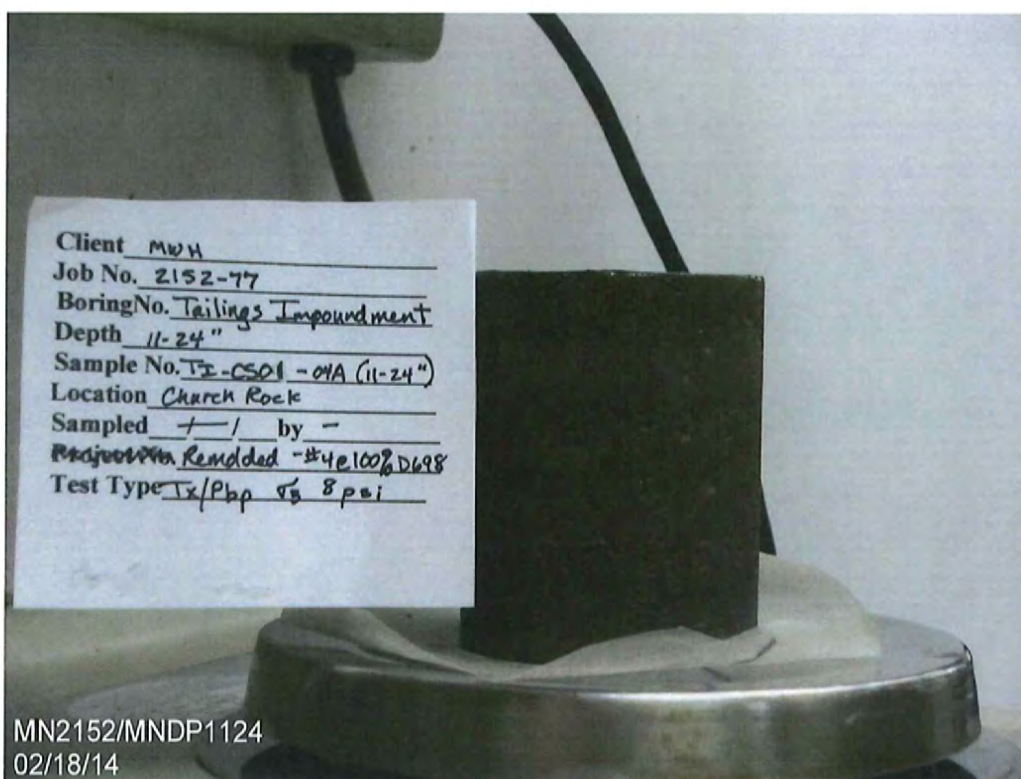 Client MWH
Job No. 2152-77
BoringNo. Tailings Impoundment
Depth 11-24"
Sample No. TI-CS01-04A (11-24")
Location Church Rock
Sampled / / by -
Remolded -#4@100% D698
Test Type Tx/Pbp σ3 8 psi
MN2152/MNDP1124
02/18/14